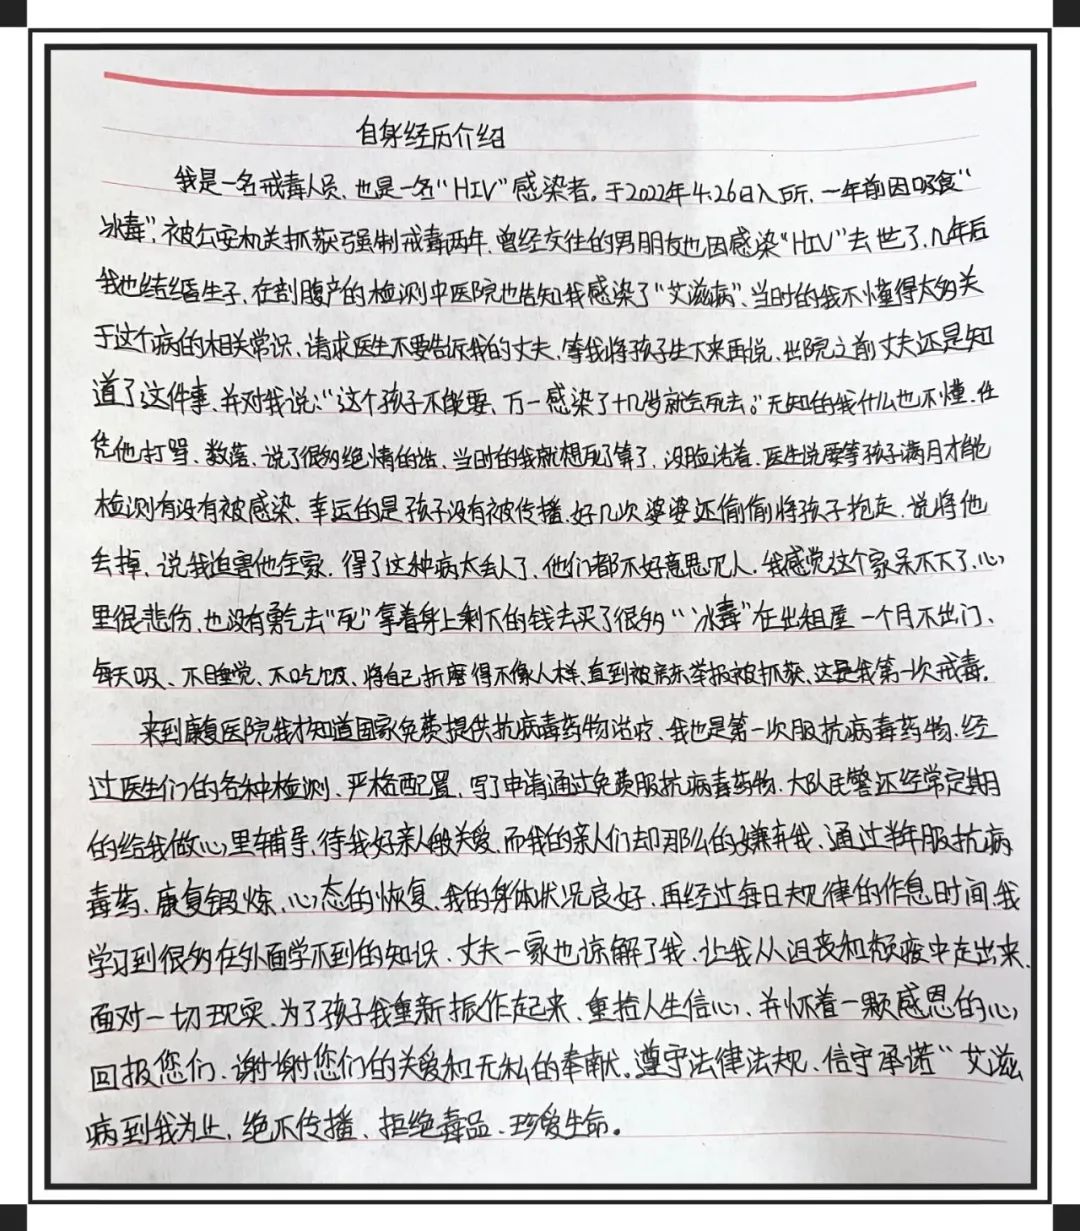 自身经历介绍
我是一名戒毒人员、也是一名“HIV”感染者。于2022年4.26日入所、一年前因吸食“
冰毒”,被公安机关抓获强制戒毒两年、曾经交往的男朋友也因感染“HIV”去世了、几年后
我也结婚生子、在剖腹产的检测中医院也告知我感染了“艾滋病”、当时的我不懂得太多关
于这个病的相关常识、请求医生不要告诉我的丈夫、等我将孩子生下来再说、出院之前丈夫还是知
道了这件事、并对我说:“这个孩子不能要、万一感染了十几岁就会死去。”无知的我什么也不懂、任
凭他打骂、数落、说了很多绝情的话、当时的我就想死了算了、没脸活着、医生说要等孩子满月才能
检测有没有被感染、幸运的是孩子没有被传播、好几次婆婆还偷偷将孩子抱走、说将他
丢掉、说我迫害他全家、得了这种病太丢人了、他们都不好意思见人、我感觉这个家呆不下了、心
里很悲伤、也没有勇气去“死”拿着身上剩下的钱去买了很多“冰毒”在出租屋一个月不出门、
每天吸、不睡觉、不吃饭、将自己折磨得不像人样、直到被房东举报被抓获、这是我第一次戒毒。
来到康复医院我才知道国家免费提供抗病毒药物治疗、我也是第一次服抗病毒药物、经
过医生们的各种检测、严格配置、写了申请通过免费服抗病毒药物、大队民警还经常定期
的给我做心里辅导、待我好亲人般关爱、而我的亲人们却那么的嫌弃我、通过半年服抗病
毒药、康复锻炼、心态的恢复、我的身体状况良好、再经过每日规律的作息时间、我
学习到很多在外面学不到的知识、丈夫一家也谅解了我、让我从沮丧和颓废中走出来、
面对一切现实、为了孩子我重新振作起来、重拾人生信心、并怀着一颗感恩的心
回报您们、谢谢您们的关爱和无私的奉献。遵守法律法规、信守承诺“艾滋
病到我为止、绝不传播、拒绝毒品、珍爱生命。